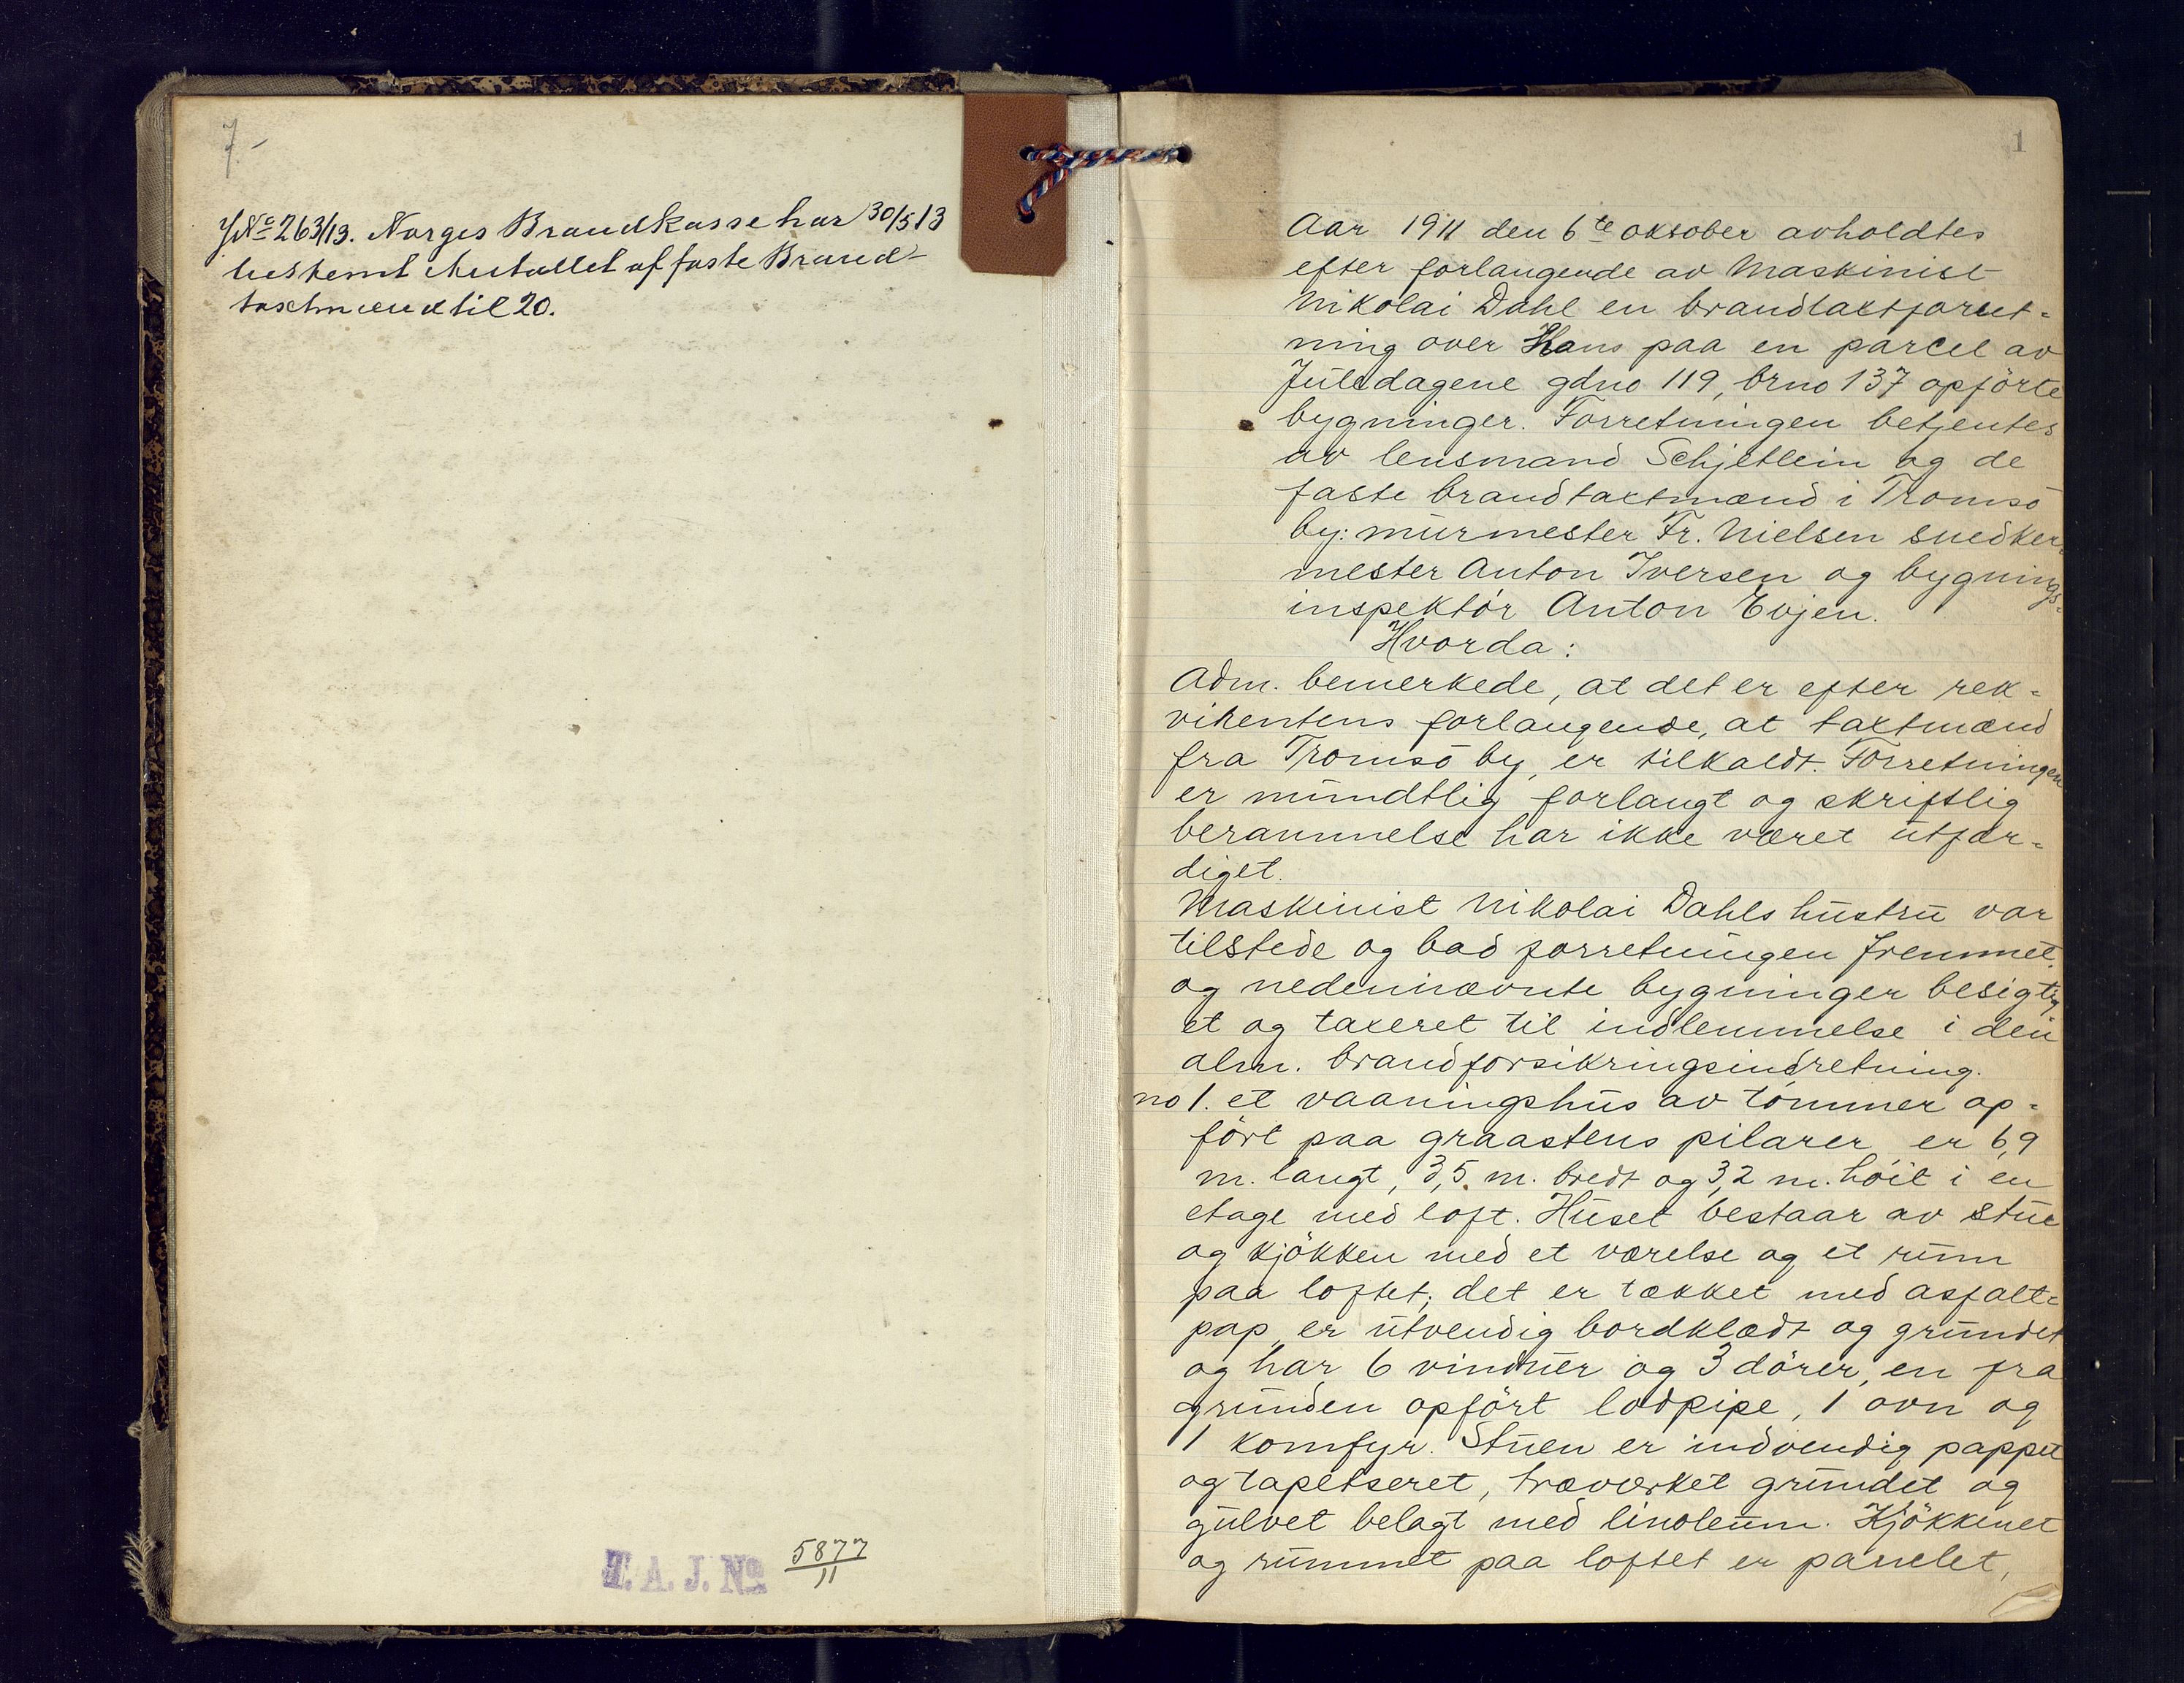 7-
J№ 263/13. Norges Brandkasse har 30/5 13
bestemt Antallet af faste Brand-
taxtmænd til 20.
T. A. J. No 5877/11
1
Aar 1911 den 6te oktober avholdtes
efter forlangende av Maskinist
Nikolai Dahl en brandtaxtforret-
ning over Hans paa en parcel av
gdno 119, brno 137 opførte
bygninger. Forretningen betjentes
av lensmand Schjetlein og de
faste brandtaxtmænd i Tromsö
by: murmester Fr. Nielsen snedker-
mester Anton Iversen og bygnings-
inspektör Anton Evjen.
Hvorda:
Adm. bemerkede, at det er efter rek-
virentens forlangende, at taxtmænd
fra Tromsö by, er tilkaldt. Forretningen
er mundtlig forlangt og skriftlig
berammelse har ikke været utfær-
diget.
Maskinist Nikolai Dahls hustru var
tilstede og bad forretningen fremmet.
og nedennævnte bygninger besigtig
et og taxeret til indlemmelse i den
alm. brandforsikringsindretning.
no 1. et vaaningshus av tömmer op-
fört paa graastens pilarer er 6,9
m. langt, 3,5 m. bredt og 3,2 m. höit i en
etage med loft. Huset bestaar av stue
og kjökken med et værelse og et rum
paa loftet; det er tækket med asfalt-
pap, er utvendig bordklædt og grundet
og har 6 vinduer og 3 dörer, en fra
grunden opfört lodpipe, 1 ovn og
1 komfyr. Stuen er indvendig pappet
og tapetseret, træverket grundet og
gulvet belagt med linoleum. Kjökkenet
og rummet paa loftet er panelet,